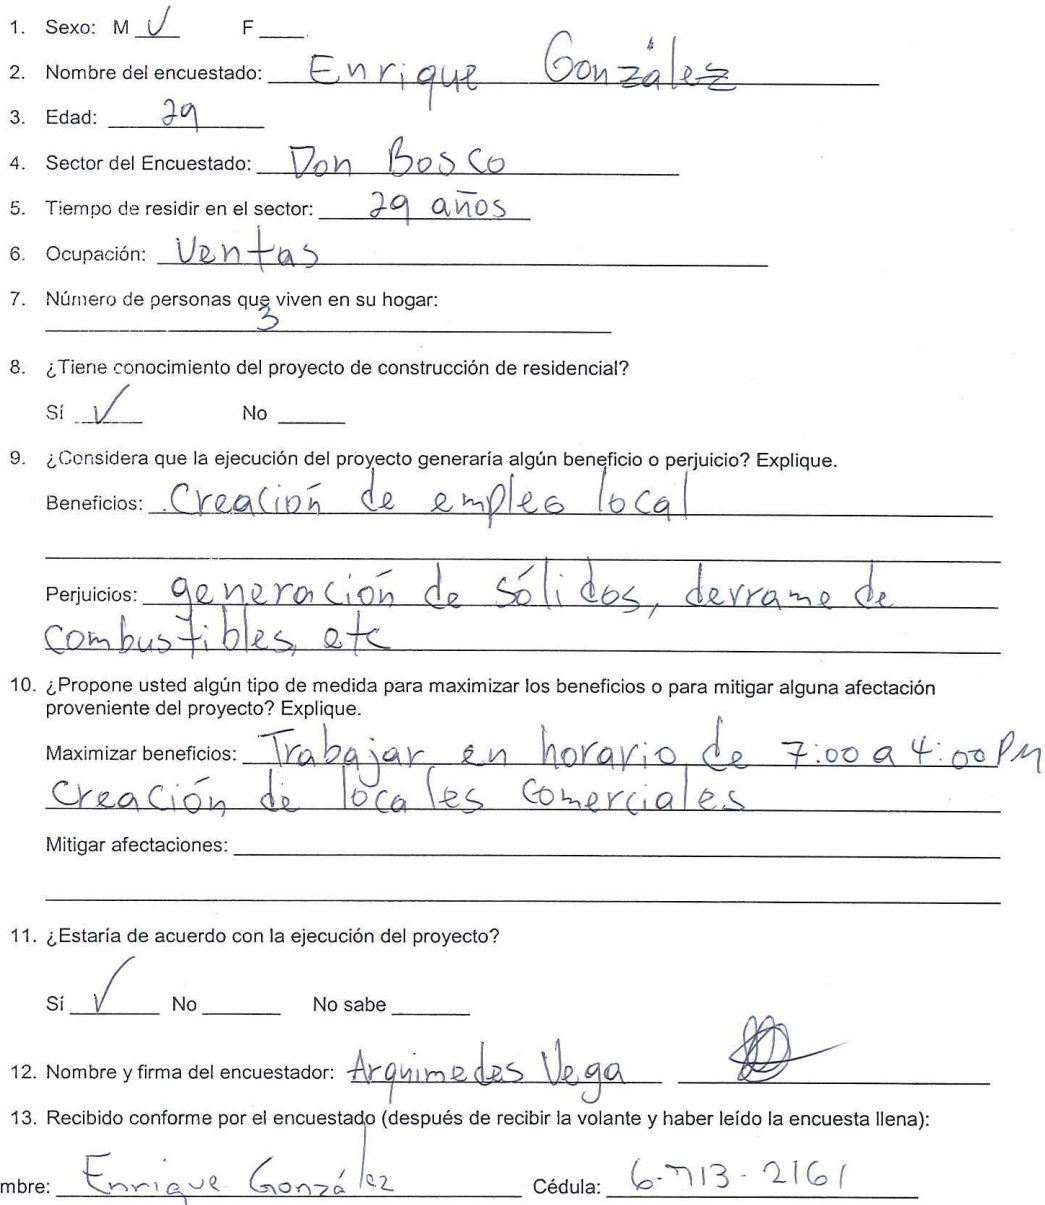 1. Sexo: M √ F ____.
2. Nombre del encuestado: Enrique González
3. Edad: 29
4. Sector del Encuestado: Don Bosco
5. Tiempo de residir en el sector: 29 años
6. Ocupación: Ventas
7. Número de personas que viven en su hogar:
3
8. ¿Tiene conocimiento del proyecto de construcción de residencial?
Sí √ No ____
9. ¿Considera que la ejecución del proyecto generaría algún beneficio o perjuicio? Explique.
Beneficios: Creación de empleo local
Perjuicios: generación de sólidos, derrame de
combustibles, etc
10. ¿Propone usted algún tipo de medida para maximizar los beneficios o para mitigar alguna afectación
proveniente del proyecto? Explique.
Maximizar beneficios: Trabajar en horario de 7:00 a 4:00 PM
Creación de locales comerciales
Mitigar afectaciones:
11. ¿Estaría de acuerdo con la ejecución del proyecto?
Sí √ No ____ No sabe ____
12. Nombre y firma del encuestador: Arquimedes Vega
13. Recibido conforme por el encuestado (después de recibir la volante y haber leído la encuesta llena):
mbre: Enrique González Cédula: 6-713-2161